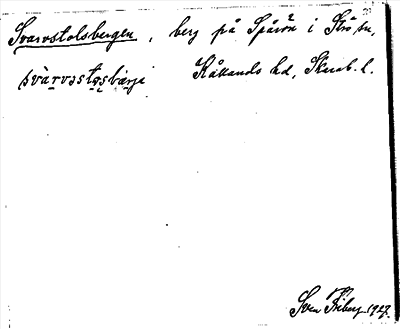 Svarvstolsbergen, berg på Spårön i Strö sn,
svarvəstɷsbärje Kållands hd, Skarab. l.
Sven Friberg 1927.